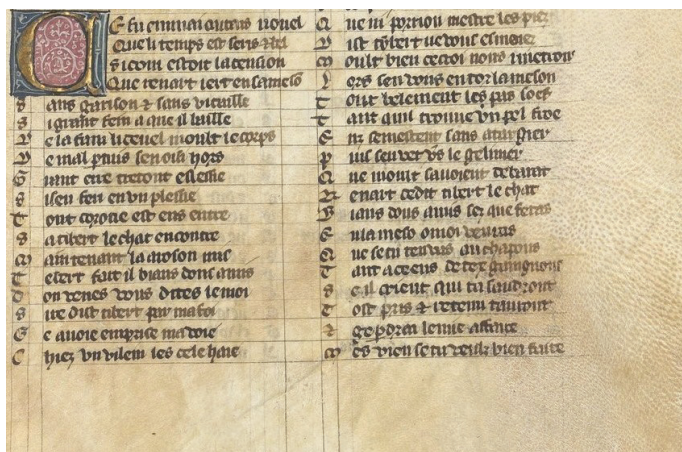 CE fu en mai au tens nouel
Que li temps est seris & bel
Si com estoit la tension
Que renart iert en sa meso
Sans garison & sans vitaille
Si grant fein a que il baille
De la fain li deuel moult le corps
De mal ptuis sen oist hors
Saut entre tretout eslessie
Si sen fen en vn plessie
Tout corocie est ens entre
Sa tibert le chat encontre
Maintenant la raison mis
Tebert fait il biaus dous amis
Don venes vous dites le moi
Sire dist tibert par ma foi
Ge auoie emprise ma voie
Chiez vn vilein les cele haie
Que ni porrion mestre les piez
Dist tybert ne vous esmaier
Moult bien
Lors sen vons entor la meson
Tout belement les pas soef
Tant quil trouue vn pel froe
Enz semestent sans atargier
Puis sen vet vs le gelinier
Que moult sauoient de barat
Renart ce dit tibert le chat
Biaus dous amis sez que feras
En la meso o moi venras
Ne se tu ten vas au chapons
Tant a ceens de tex guingnons
Sil crient qui ta saudront
Tost pris & retenu tauront
ge perdrai le mie
Mes bien se tu veulz bien faire